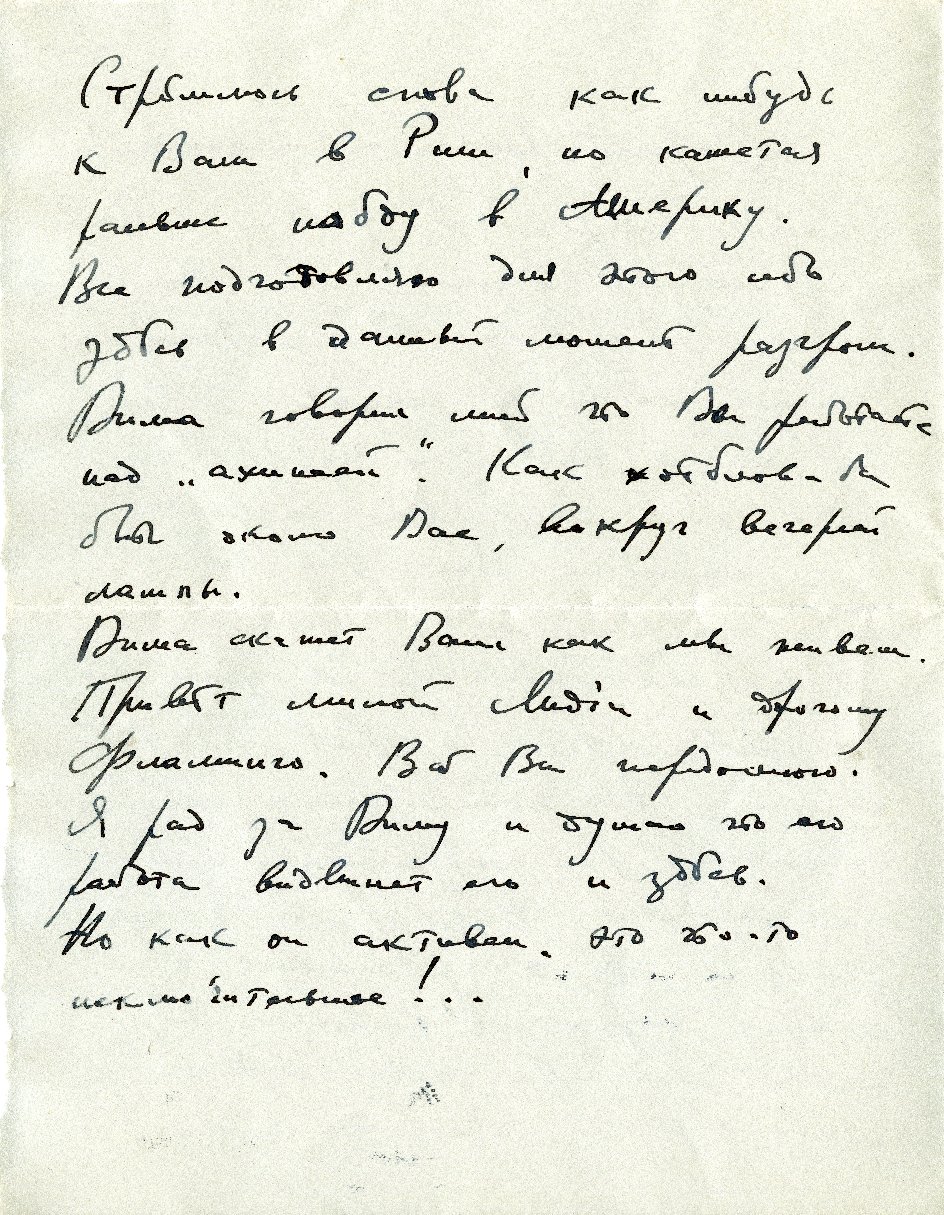 Стрѣмлюсь снова как нибудь
к Вам в Рим, но кажется
раньше поѣду в Америку.
Все подготовляю для этого ибо
здѣсь в данный момент разгром.
Вима говорил мнѣ что Вы работаете
над „ахинеей“. Как хотѣлось бы
быть около Вас, вокруг вечерней
лампы.
Вима скажет Вам как мы живем.
Привѣт милой Лидiи и дорогому
Фламинго. Всѣ Вы
Я рад за Виму и думаю что его
работа выдвинет его и здѣсь.
Но как он активен, это что-то
исключительное!...